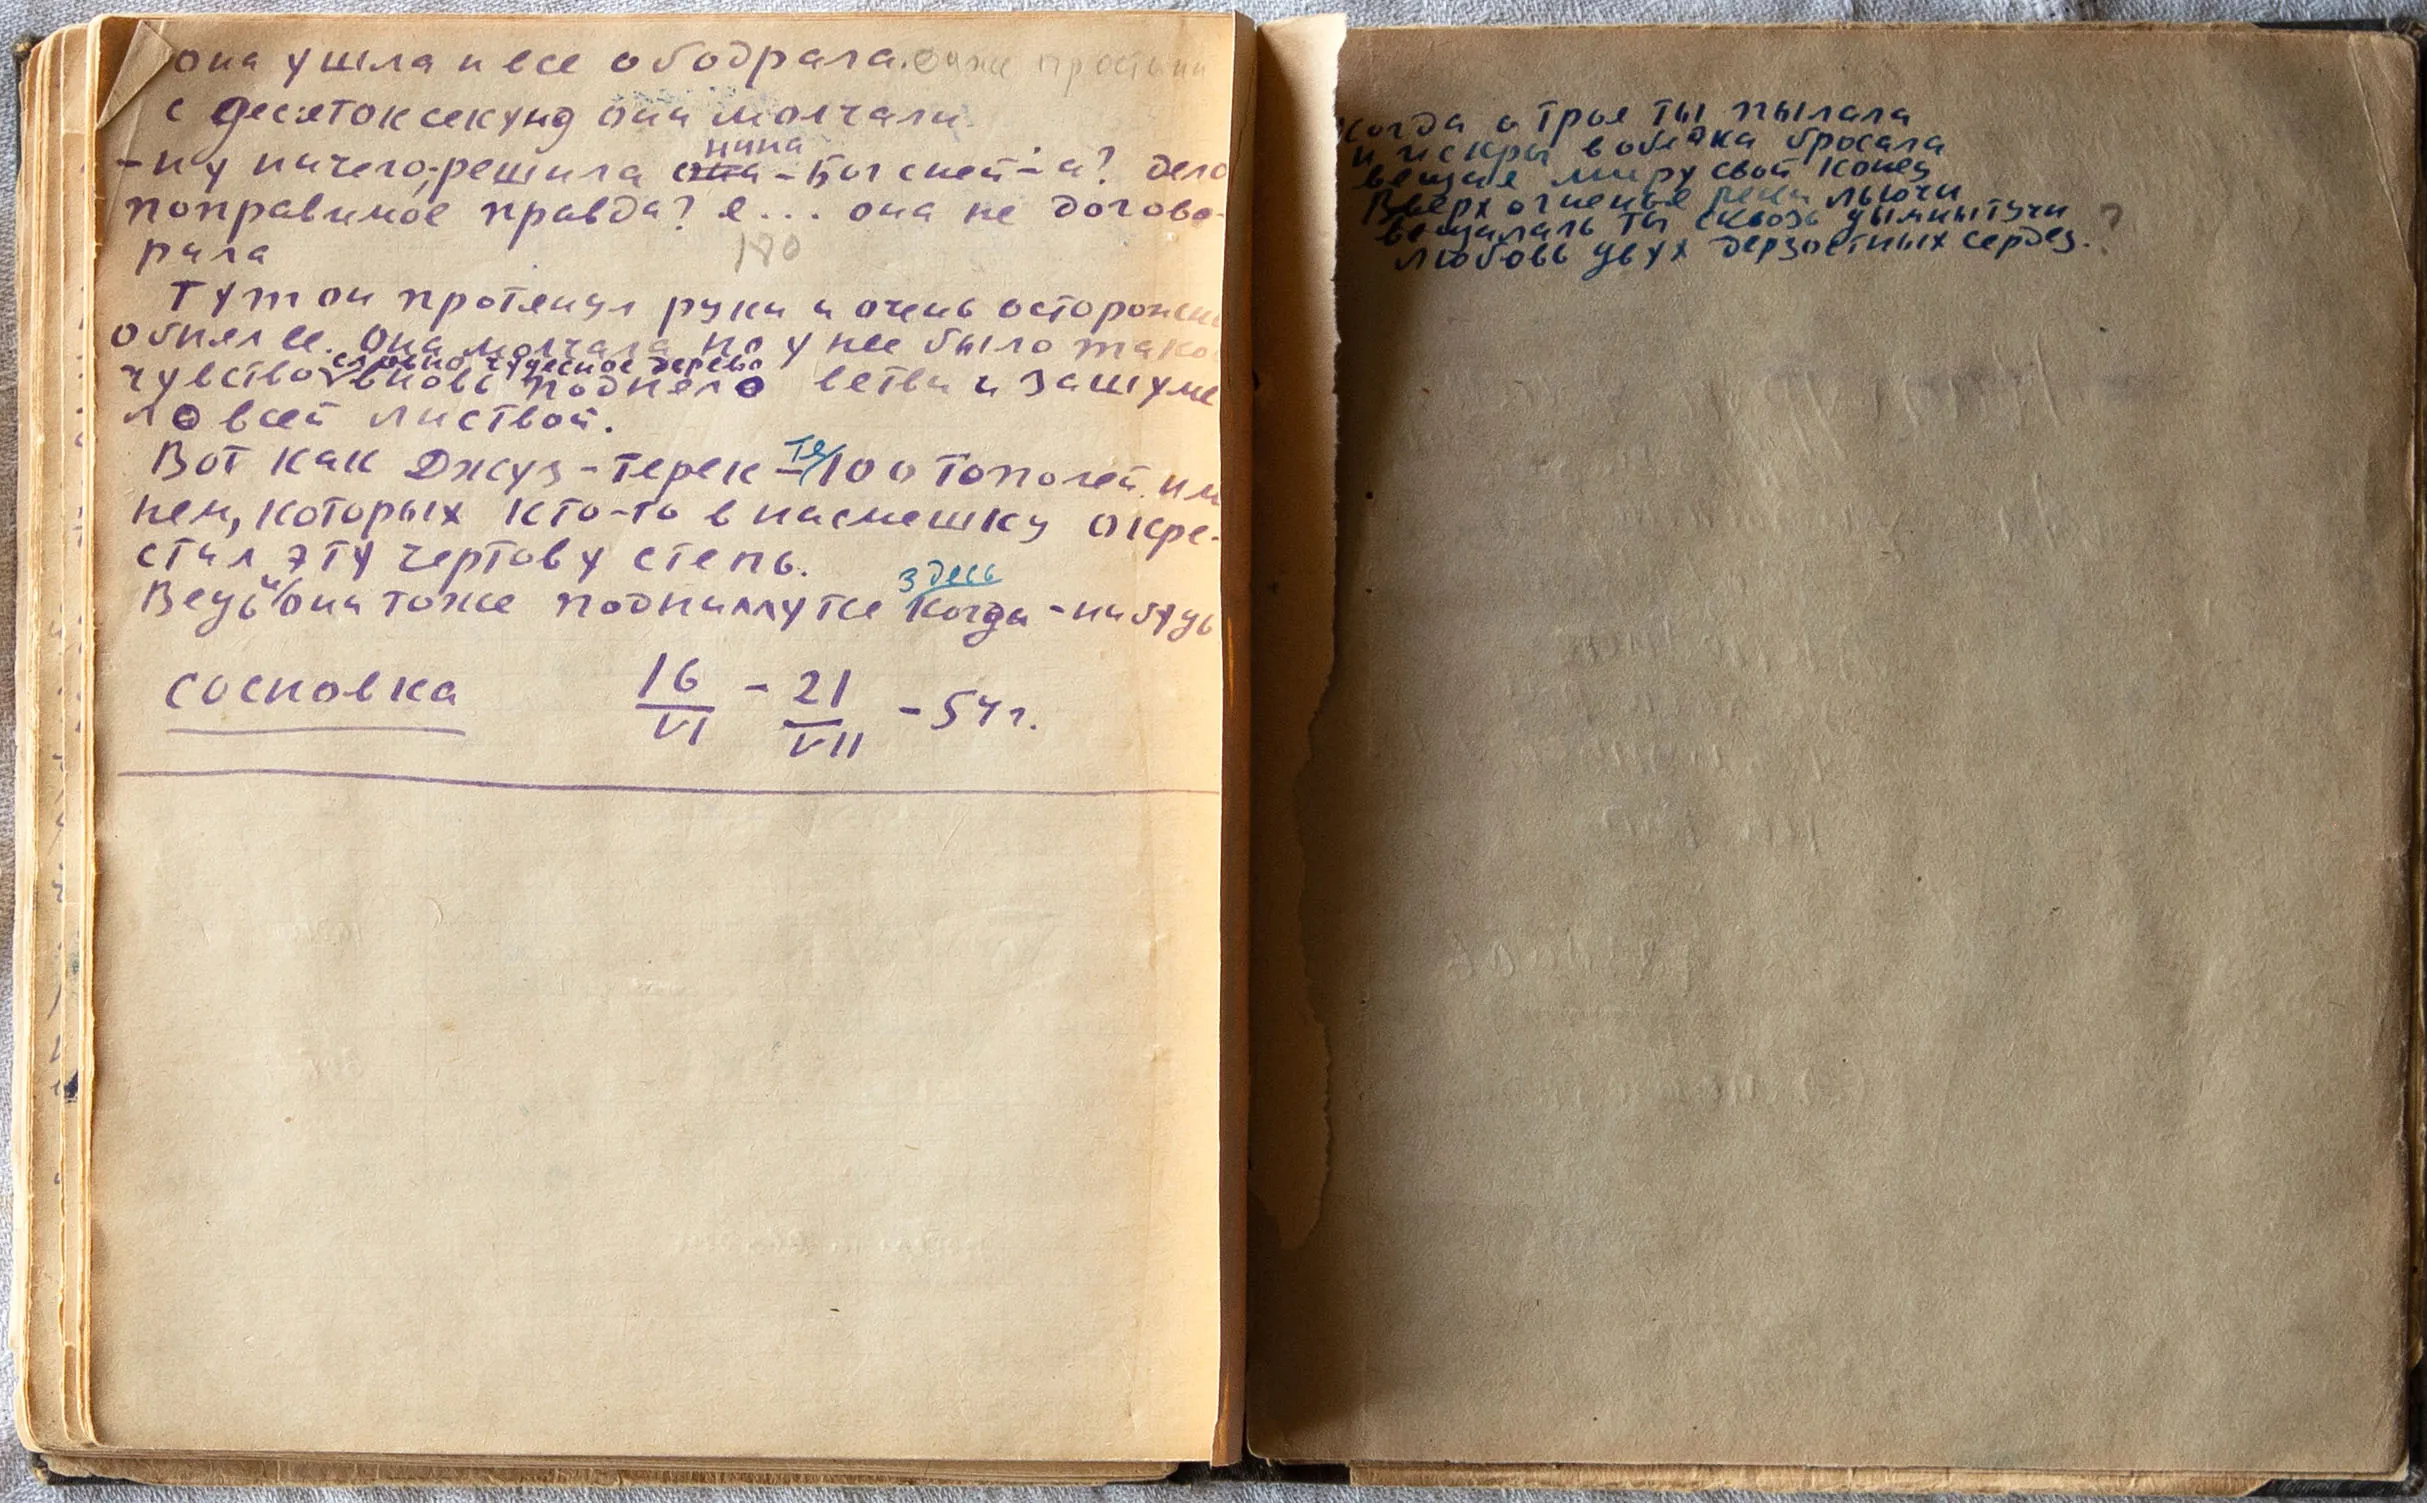 она ушла и все ободрала. даже простыни
с десяток секунд они молчали
нина
- ну ничего, - решила она - Бог с ней - а? дело
поправимое правда? я... она не догово-
рила
180
Тут он протянул руки и очень осторожно
обнял ее. Она молчала но у нее было тако
словно чудесное дерево
чувство вновь подняло ветви и зашуме
ло всей листвой.
те
Вот как Джуз-терек - 100 тополей. им
нем, которых кто-то в насмешку окре-
стил эту чертову степь.
здесь
Ведь и они тоже поднимутся когда-нибудь
Сосновка 16/VI - 21/VII - 54 г.
Когда о троя ты пылала
и искры в облака бросала
вещая миру свой конец
Вверх огненные реки льючи
вещалаль ты сквозь дымны тучи
любовь двух дерзостных сердец. ?